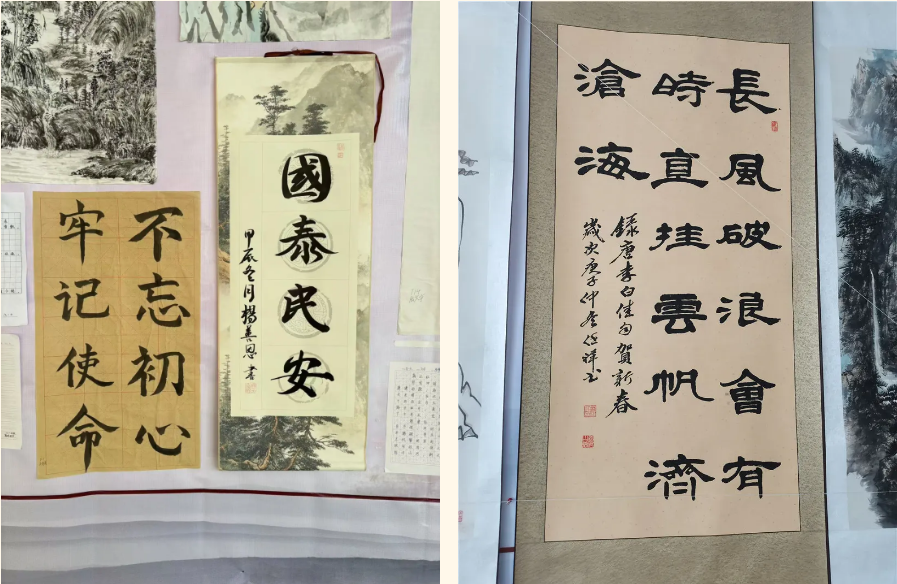 不忘初心
牢记使命
國泰民安
甲辰冬月楊善恩書
長風破浪會有
時直挂雲帆濟
滄海
錄唐李白佳句賀新春
歲次庚子仲冬